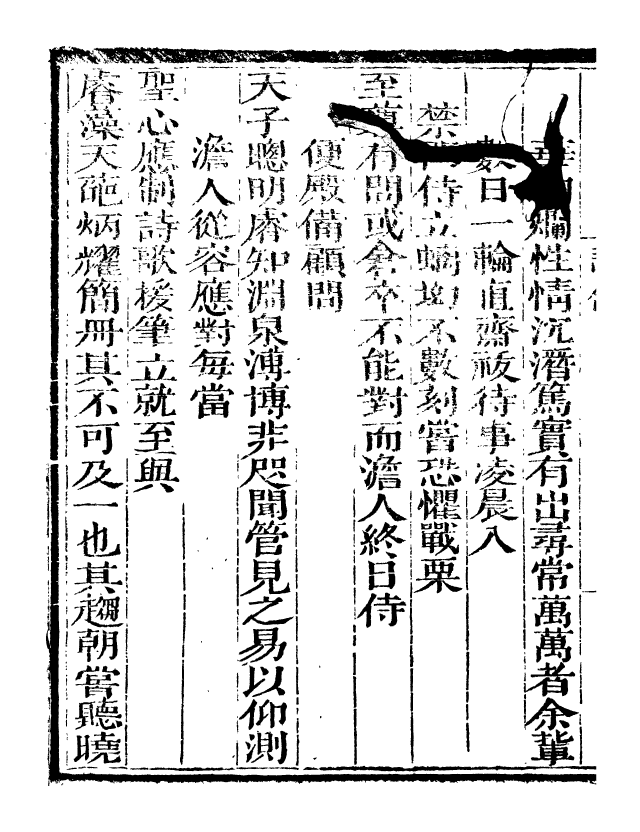 爛性情沉潛篤實有出尋常萬萬者余輩
數日一輪直齋祓待事凌晨入
禁侍立螭坳不數刻嘗恐懼戰栗
至萬有問或倉卒不能對而澹人終日侍
便殿備顧問
天子聰明睿知淵泉溥博非咫聞管見之易以仰測
澹人從容應對每當
聖心應制詩歌援筆立就至與
睿藻天葩炳耀簡冊其不可及一也其趨朝嘗聽曉